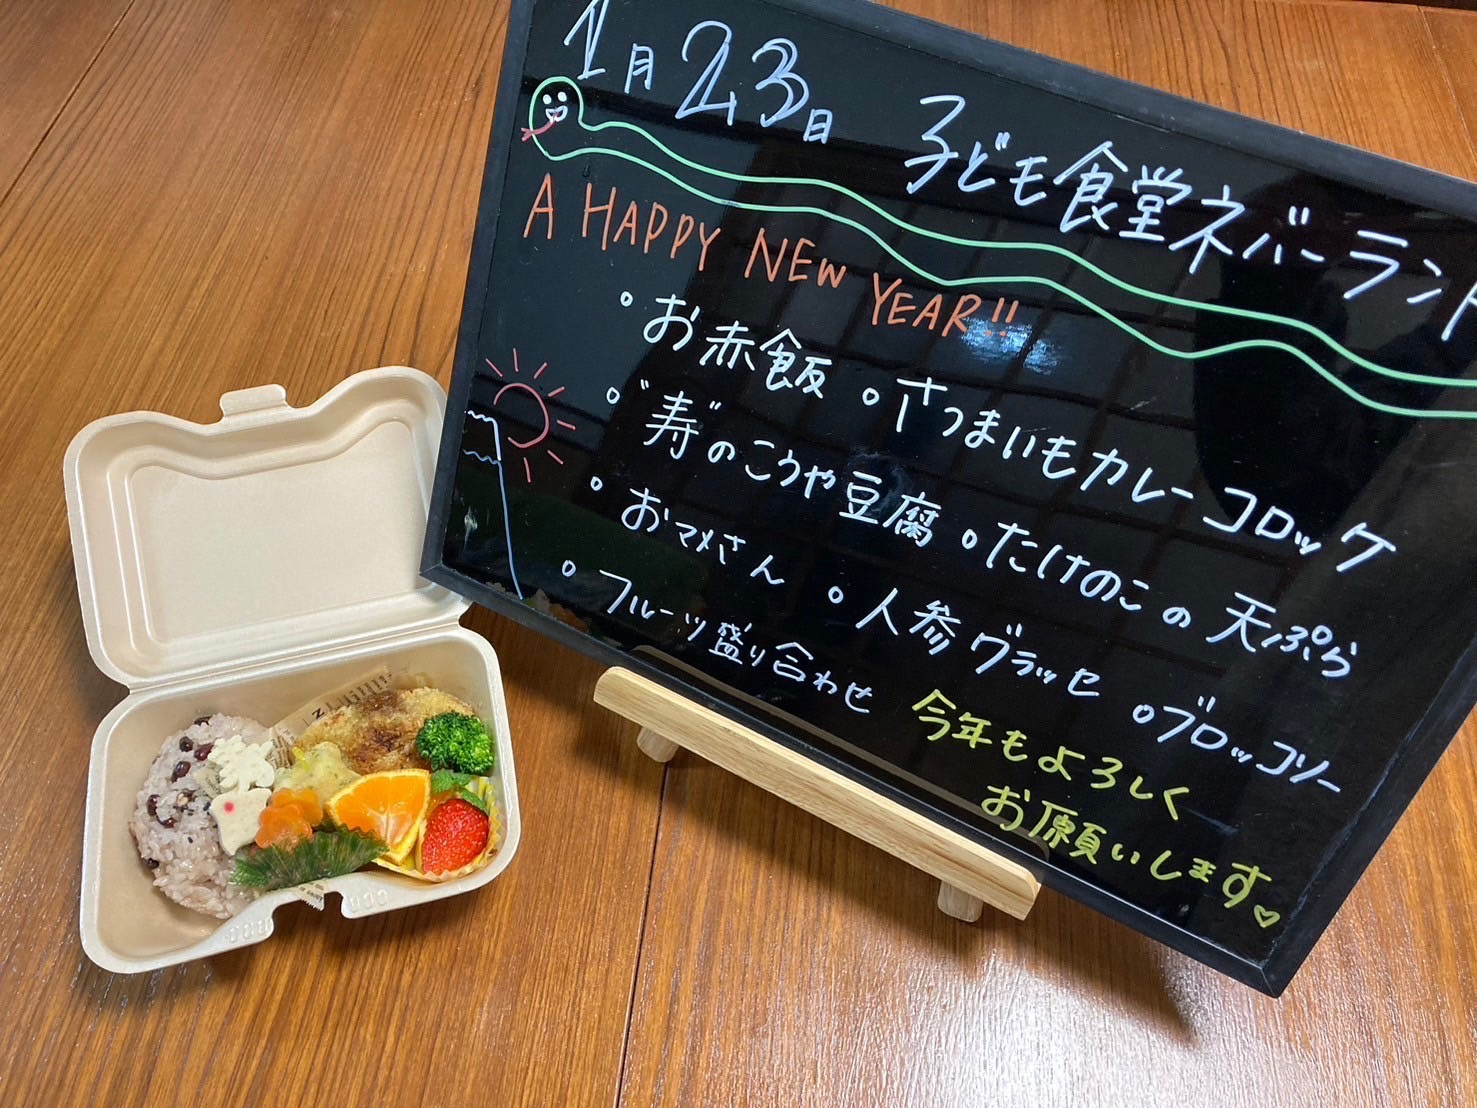 1月23日 子ども食堂ネバーランド
A HAPPY NEW YEAR!!
。お赤飯 。さつまいもカレーコロッケ
。"寿"のこうや豆腐 。たけのこの天ぷら
。おマメさん 。人参グラッセ 。ブロッコリー
。フルーツ盛り合わせ
今年もよろしく
お願いします♡